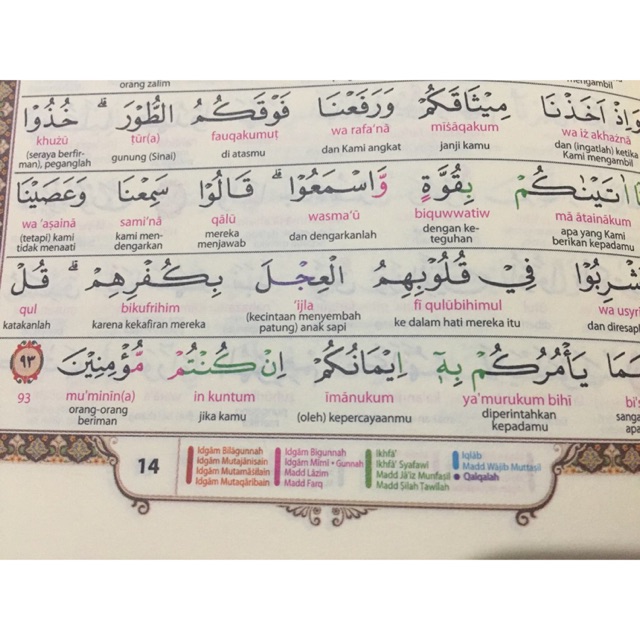 orang zalim
mengambil
وَاِذْ اَخَذْنَا مِيْثَاقَكُمْ وَرَفَعْنَا فَوْقَكُمُ الطُّوْرَ ۗ خُذُوْا
wa iż akhażnā miṡāqakum wa rafa'nā fauqakumuṭ ṭūr(a) khużū
dan (ingatlah) ketika Kami mengambil janji kamu dan Kami angkat di atasmu gunung (Sinai) (seraya berfirman), peganglah
اٰتَيْنٰكُمْ بِقُوَّةٍ وَّاسْمَعُوْا ۗ قَالُوْا سَمِعْنَا وَعَصَيْنَا
mā ātainākum biquwwatiw wasma'ū qālū sami'nā wa 'aṣainā
apa yang Kami berikan kepadamu dengan keteguhan dan dengarkanlah mereka menjawab kami mendengarkan (tetapi) kami tidak menaati
فِيْ قُلُوْبِهِمُ الْعِجْلَ بِكُفْرِهِمْ ۗ قُلْ
fī qulūbihimul 'ijla bikufrihim qul
ke dalam hati mereka itu (kecintaan menyembah patung) anak sapi karena kekafiran mereka katakanlah
يَأْمُرُكُمْ بِهٖٓ اِيْمَانُكُمْ اِنْ كُنْتُمْ مُّؤْمِنِيْنَ ٩٣
ya'murukum bihī īmānukum in kuntum mu'minīn(a) 93
diperintahkan kepadamu (oleh) kepercayaanmu jika kamu orang-orang beriman
14
Idgām Bilāgunnah
Idgām Mutajānisain
Idgām Mutamāṡilain
Idgām Mutaqāribain
Idgām Bigunnah
Idgām Mimī • Gunnah
Madd Lāzim
Madd Farq
Ikhfā'
Ikhfā' Syafawi
Madd Jā'iz Munfaṣil
Madd Ṣilah Ṭawīlah
Iqlāb
Madd Wājib Muttaṣil
Qalqalah